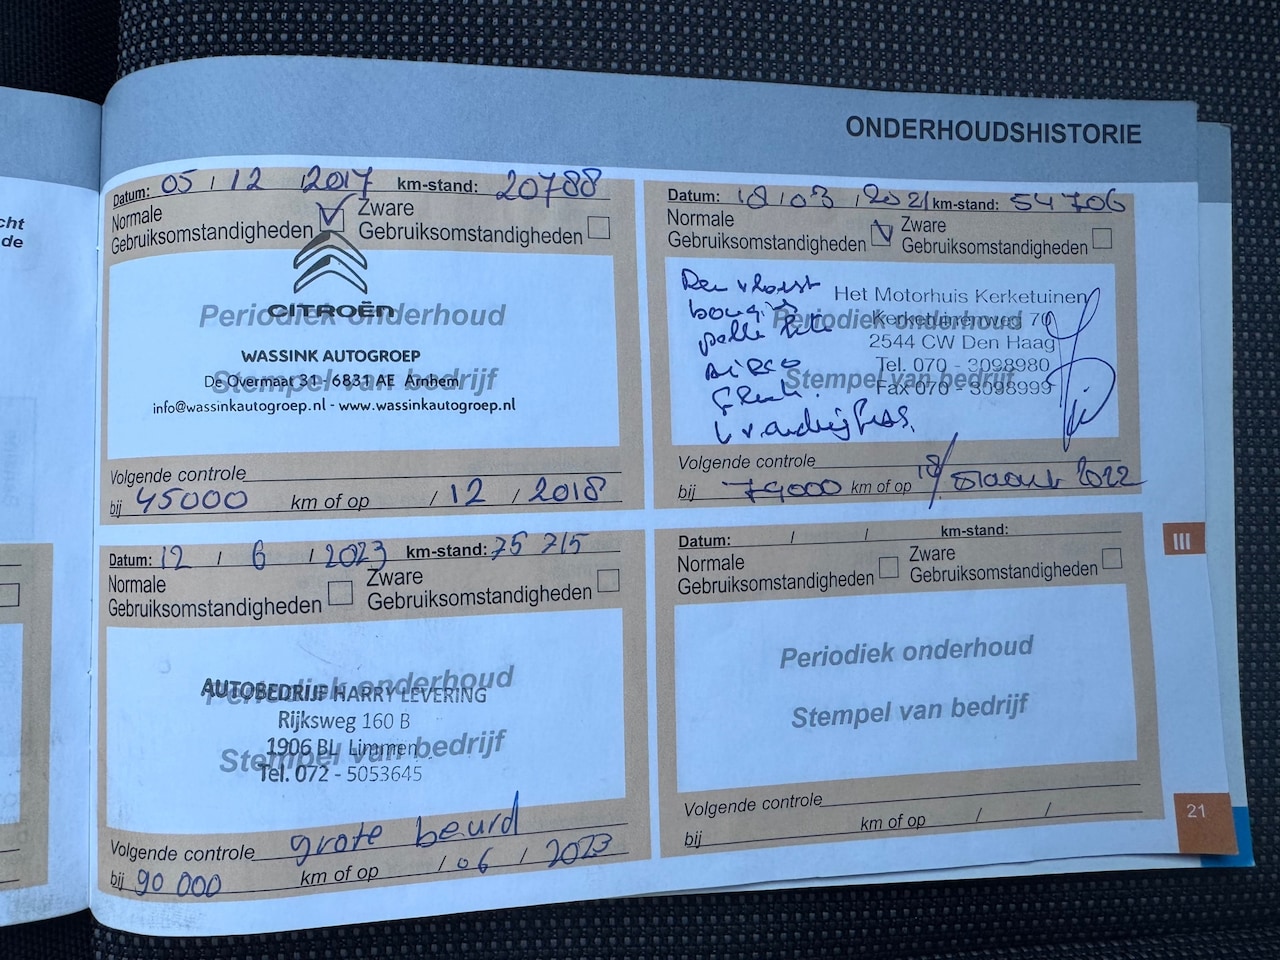 cht
de
ONDERHOUDSHISTORIE
Datum: 05 / 12 / 2017 km-stand: 20788
Normale
Gebruiksomstandigheden
Zware
Gebruiksomstandigheden
CITROËN
Periodiek onderhoud
WASSINK AUTOGROEP
De Overmaat 31 - 6831 AE Arnhem
Stempel van bedrijf
info@wassinkautogroep.nl - www.wassinkautogroep.nl
Volgende controle
bij 45000 km of op / 12 / 2018
Datum: 18 / 03 / 2021 km-stand: 54706
Normale
Gebruiksomstandigheden
Zware
Gebruiksomstandigheden
Remvloeist
bougies
Airco
Het Motorhuis Kerketuinen
Kerketuinenweg 70
Periodiek onderhoud
2544 CW Den Haag
Tel. 070 - 3098980
Stempel van bedrijf
Fax 070 - 3098999
Volgende controle
bij 79000 km of op 18/ maart 2022
Datum: 12 / 6 / 2023 km-stand: 75 715
Normale
Gebruiksomstandigheden
Zware
Gebruiksomstandigheden
Periodiek onderhoud
AUTOBEDRIJF HARRY LEVERING
Rijksweg 160 B
1906 BL Limmen
Stempel van bedrijf
Tel. 072 - 5053645
Volgende controle grote beurd
bij 90 000 km of op / 06 / 2023
Datum: / / km-stand:
Normale
Gebruiksomstandigheden
Zware
Gebruiksomstandigheden
Periodiek onderhoud
Stempel van bedrijf
Volgende controle
bij km of op / /
III
21